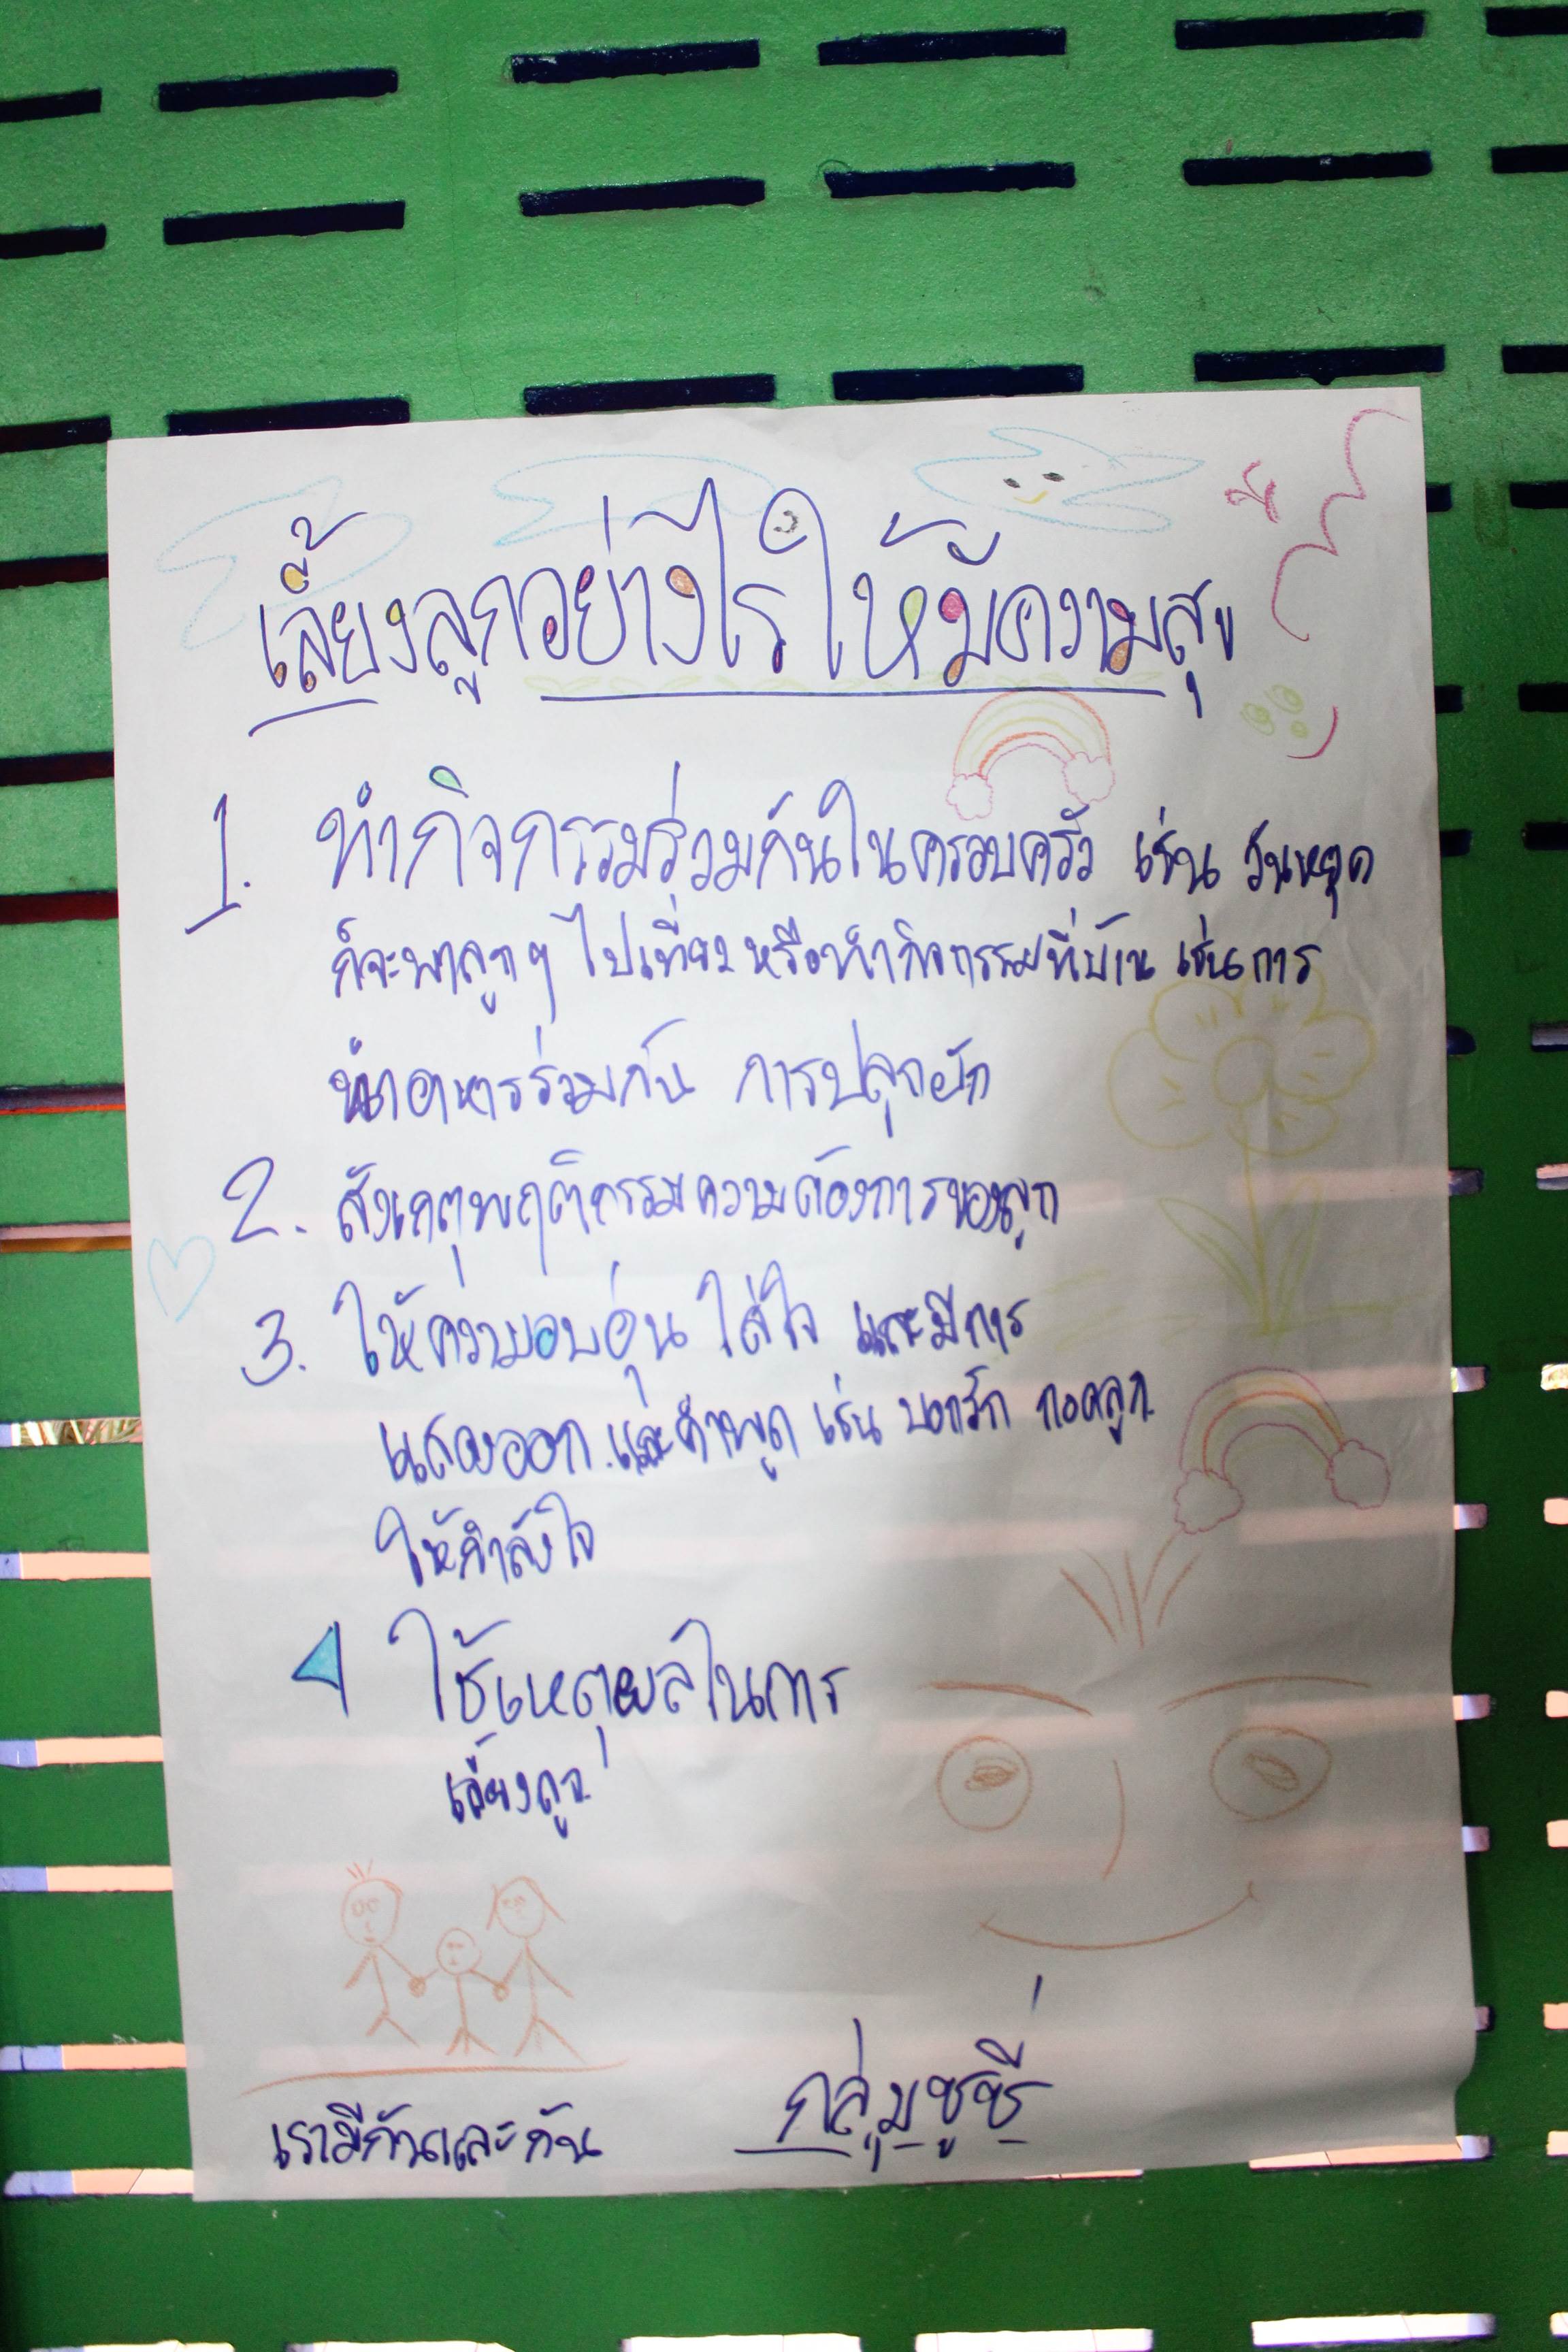 เลี้ยงลูกอย่างไรให้มีความสุข
1. ทำกิจกรรมร่วมกันในครอบครัว เช่น วันหยุด
ก็จะพาลูกๆ ไปเที่ยว หรือทำกิจกรรมที่บ้าน เช่นการ
ทำอาหารร่วมกัน การปลูกผัก
2. สังเกตุพฤติกรรมความต้องการของลูก
3. ให้ความอบอุ่น ใส่ใจ และมีการ
แสดงออก และคำพูด เช่น บอกรัก กอดลูก
ให้กำลังใจ
4 ใช้เหตุผลในการ
เลี้ยงลูก
เรามีกันและกัน
กลุ่มซูชิ